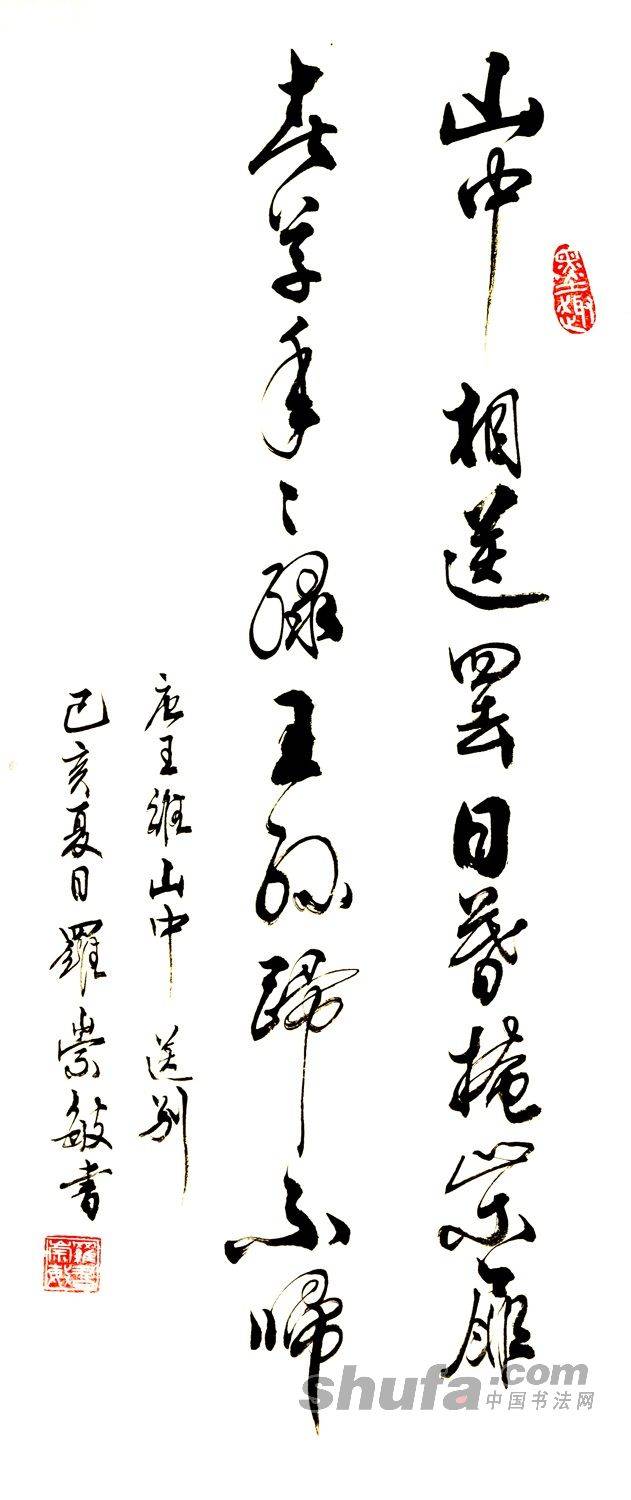 山中相送罢日暮掩柴扉
墨趣
春草年々绿王孙歸不歸
唐王維山中送别
己亥夏日羅崇敏書
shufa.com
中国书法网